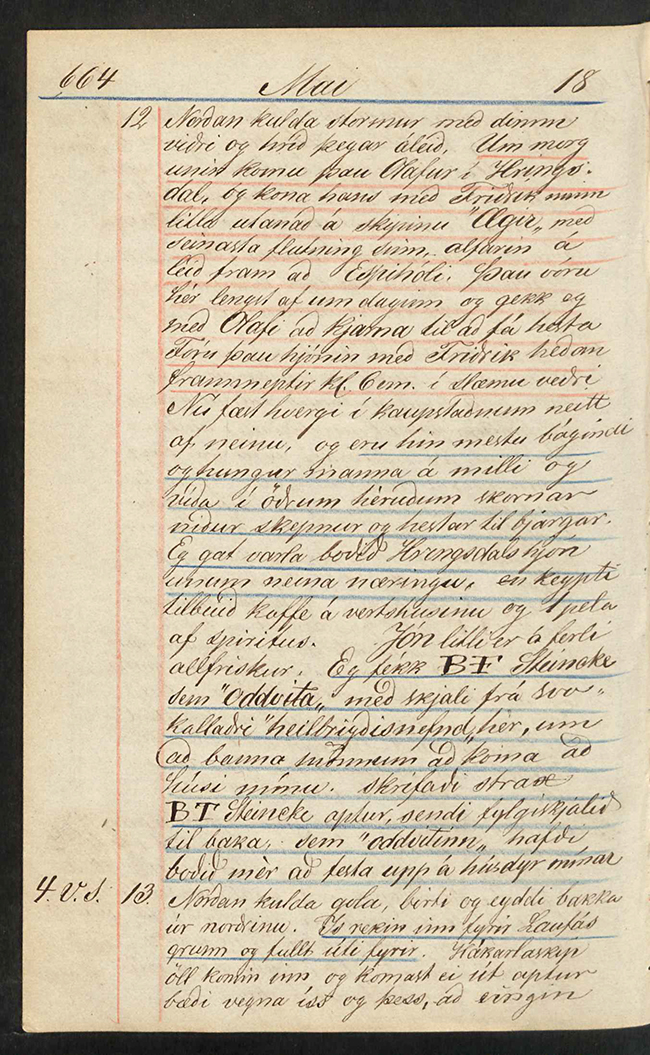 664 Mai 18
12 Norðan kulda stormur með dimm
viðri og hríð þegar áleið. Um morg
unin komu þau Olafur í Hrings-
dal, og kona hans með Friðrik minn
litla utanað á skipinu "Ægir„ með
seinasta flutning sinn, alfarin á
leið fram að Espihóli. Þau vóru
hér lengst af um daginn og gekk eg
með Olafi að Kjarna til að fá hesta
Fóru þau hjónin með Friðrik héðan
frammeptir kl. 6 em. í slæmu veðri
Nú fæst hvergi í kaupstaðnum neitt
af neinu, og eru hin mestu bágindi
og hungur manna á milli og
víða í öðrum héruðum skornar
niður skepnur og hestar til bjargar.
Eg gat varla boðið Hringsdals hjón
unum neina næringu, en keypti
tilbúið kaffe á vertshúsinu og 1 pela
af spiritus. Jón litli er á ferli
allfriskur. Eg fékk BF Steincke
sem "Oddvita„ með skjali frá svo„
kallaðri "heilbrigðisnefnd„ hér, um
að banna mönnum að koma að
húsi mínu. Skrifaði strax
BT Steincke aptur, sendi fylgiskjalið
til baka, sem "oddvitinn„ hafði
boðið mér að festa upp á húsdyr mínar
4. V. S. 13. Norðan kulda gola, birti og eyddi bakka
úr norðrinu. Ís rekin inn fyrir Laufás
grunn og fullt úti fyrir. Hákarlaskip
öll komin inn og komast ei út aptur
bæði vegna íss og þess, að eingin